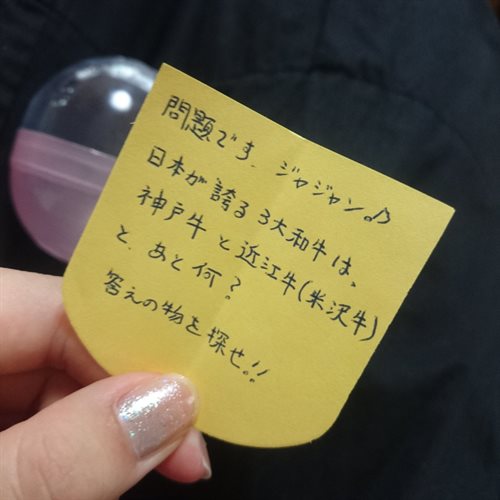 問題です、ジャジャン♪
日本が誇る3大和牛は、
神戸牛と近江牛(米沢牛)
と、あと何?
答えの物を探せ!!